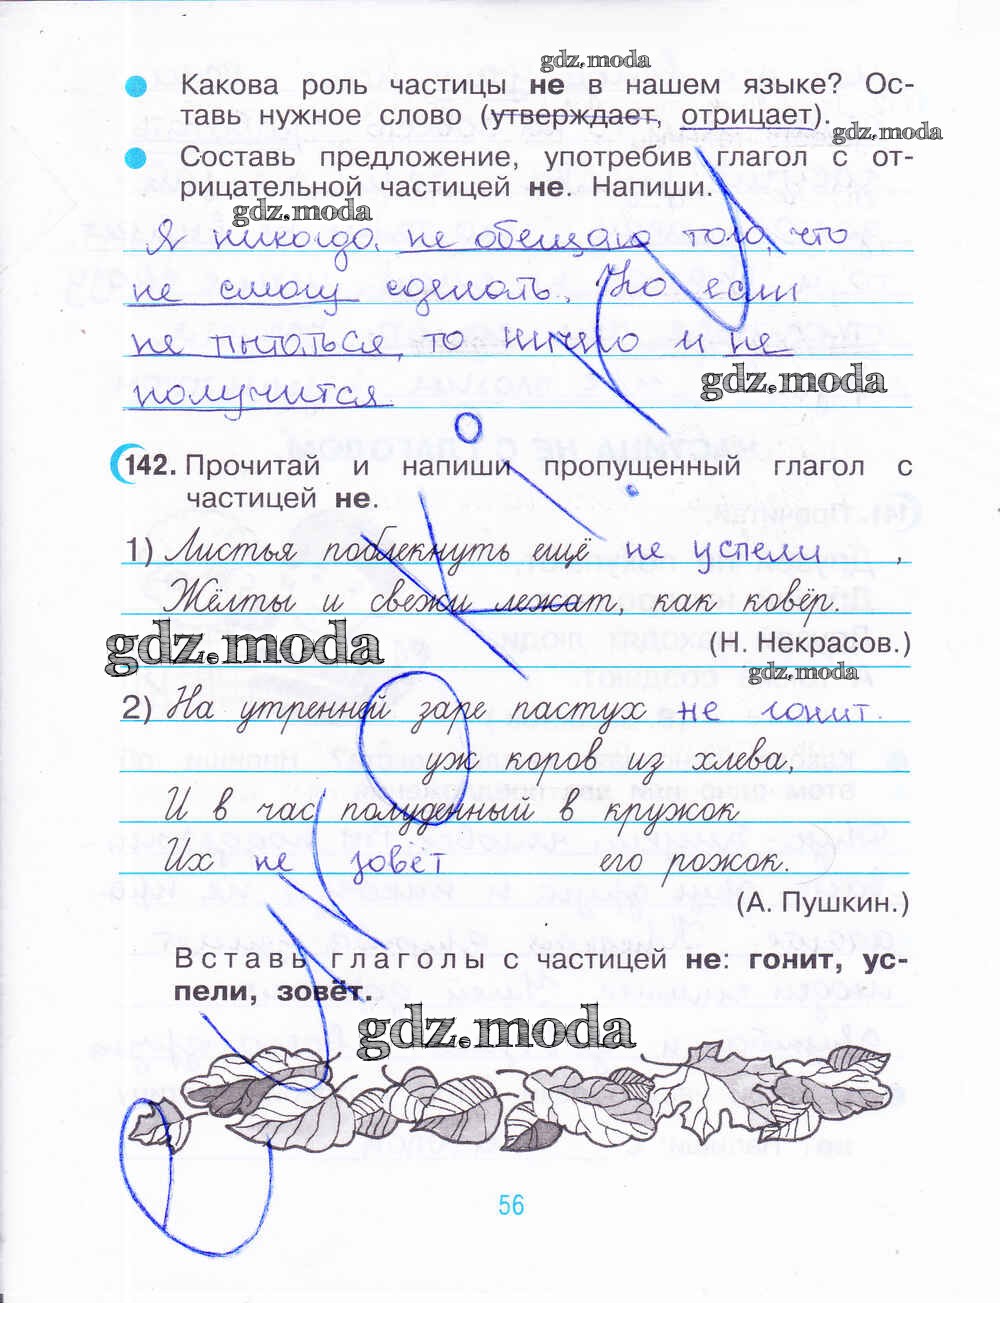 gdz.moda
Какова роль частицы не в нашем языке? Ос-
тавь нужное слово (утверждает, отрицает).
gdz.moda
Составь предложение, употребив глагол с от-
рицательной частицей не. Напиши.
gdz.moda
Я никогда не обещаю того, что
не смогу сделать. Но если
не пытаться, то ничего и не
gdz.moda
получится.
142. Прочитай и напиши пропущенный глагол с
частицей не.
1) Листья поблекнуть ещё не успели ,
Жёлты и свежи лежат, как ковёр.
gdz.moda
(Н. Некрасов.)
gdz.moda
2) На утренней заре пастух не гонит
уж коров из хлева,
И в час полуденный в кружок
Их не зовёт его рожок.
(А. Пушкин.)
Вставь глаголы с частицей не: гонит, ус-
пели, зовёт.
gdz.moda
56